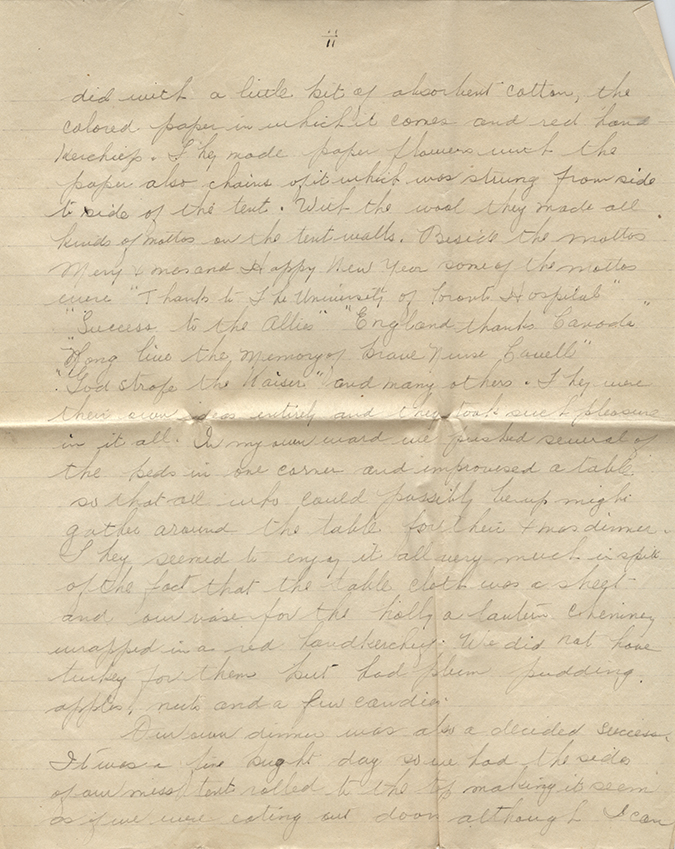 11
did with a little bit of absorbent cotton, the
colored paper in which it comes and red hand
kerchiefs. They made paper flowers with the
paper also chains of it which was strung from side
to side of the tent. With the wool they made all
kinds of mottos on the tent walls. Beside the mottos
Merry Xmas and Happy New Year some of the mottos
were "Thanks to The University of Toronto Hospital"
"Success to the Allies" "England thanks Canada"
"Long live the Memory of brave Nurse Cavell"
"God strafe the Kaiser" and many others. They were
their own ideas entirely and they took such pleasure
in it all. In my own ward we pushed several of
the beds in one corner and improvised a table
so that all who could possibly be up might
gather around the table for their Xmas dinner.
They seemed to enjoy it all very much in spite
of the fact that the table cloth was a sheet
and our vase for the holly a lantern chimney
wrapped in a red handkerchief. We did not have
turkey for them but had plum pudding,
apples, nuts and a few candies.
Our own dinner was also a decided success.
It was a fine bright day so we had the sides
of our mess tent rolled to the top making it seem
as if we were eating out doors although I can